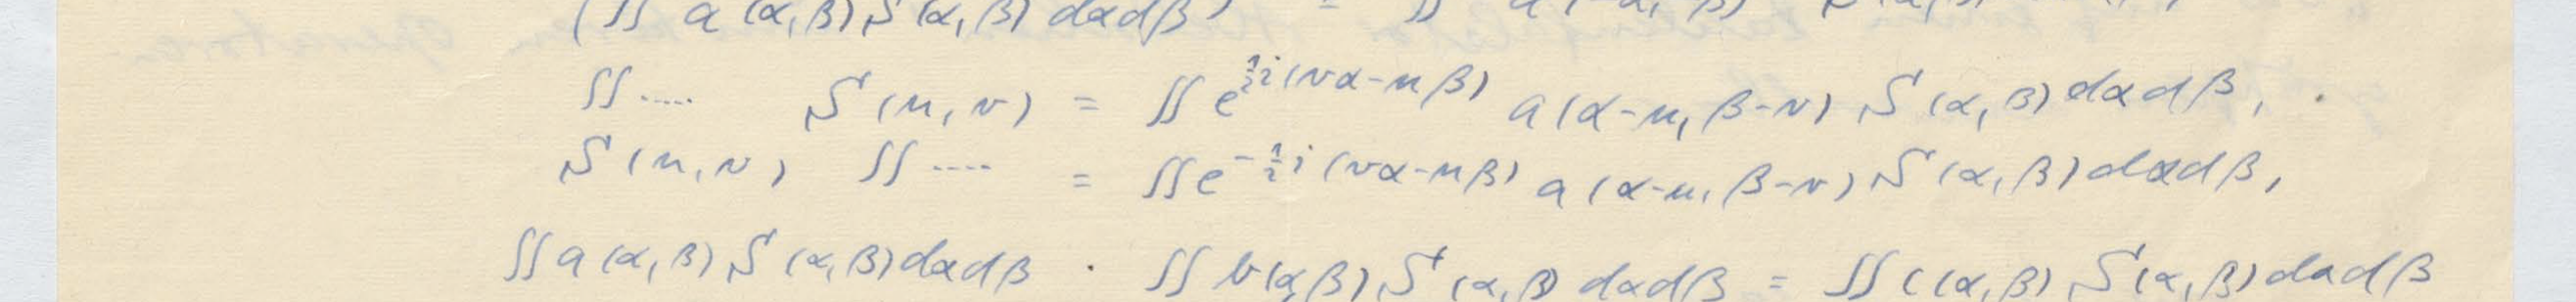 (∬ a(α,β) S(α,β) dαdβ)
∬ ..... S(u,v) = ∬ e^{½i(vα-uβ)} a(α-u, β-v) S(α,β) dαdβ,
S(u,v) ∬ .... = ∬ e^{-½i(vα-uβ)} a(α-u, β-v) S(α,β) dαdβ,
∬ a(α,β) S(α,β) dαdβ · ∬ b(α,β) S(α,β) dαdβ = ∬ c(α,β) S(α,β) dαdβ